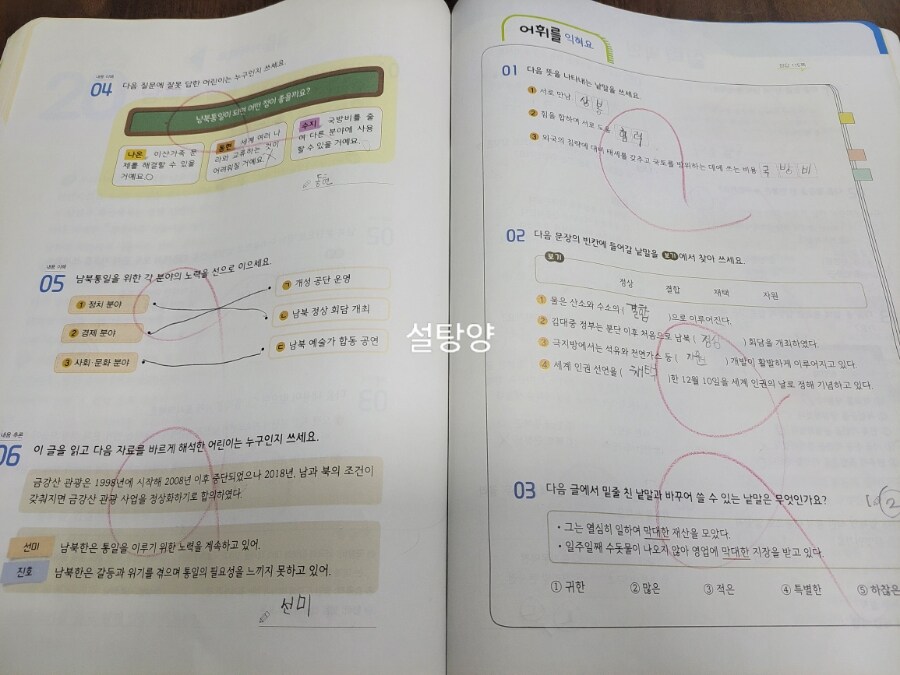 내용 이해
04 다음 질문에 잘못 답한 어린이는 누구인지 쓰세요.
남북통일이 되면 어떤 점이 좋을까요?
나은 이산가족 문
제를 해결할 수 있을
거예요.
동현 세계 여러 나
라와 교류하는 것이
어려워질 거예요.
수지 국방비를 줄
여 다른 분야에 사용
할 수 있을 거예요.
동현
내용 이해
05 남북통일을 위한 각 분야의 노력을 선으로 이으세요.
1 정치 분야
2 경제 분야
3 사회·문화 분야
㉠ 개성 공단 운영
㉡ 남북 정상 회담 개최
㉢ 남북 예술가 합동 공연
설탕양
내용 추론
06 이 글을 읽고 다음 자료를 바르게 해석한 어린이는 누구인지 쓰세요.
금강산 관광은 1998년에 시작해 2008년 이후 중단되었으나 2018년, 남과 북의 조건이
갖춰지면 금강산 관광 사업을 정상화하기로 합의하였다.
선미 남북한은 통일을 이루기 위한 노력을 계속하고 있어.
진호 남북한은 갈등과 위기를 겪으며 통일의 필요성을 느끼지 못하고 있어.
선미
어휘를 익혀요
01 다음 뜻을 나타내는 낱말을 쓰세요.
1 서로 만남 상봉
2 힘을 합하여 서로 도움 협력
3 외국의 침략에 대비 태세를 갖추고 국토를 방위하는 데에 쓰는 비용 국방비
02 다음 문장의 빈칸에 들어갈 낱말을 보기에서 찾아 쓰세요.
보기
정상 결합 채택 자원
1 물은 산소와 수소의 ( 결합 )으로 이루어진다.
2 김대중 정부는 분단 이후 처음으로 남북 ( 정상 ) 회담을 개최하였다.
3 극지방에서는 석유와 천연가스 등 ( 자원 ) 개발이 활발하게 이루어지고 있다.
4 세계 인권 선언을 ( 채택 )한 12월 10일을 세계 인권의 날로 정해 기념하고 있다.
03 다음 글에서 밑줄 친 낱말과 바꾸어 쓸 수 있는 낱말은 무엇인가요?
②
• 그는 열심히 일하여 막대한 재산을 모았다.
• 일주일째 수돗물이 나오지 않아 영업에 막대한 지장을 받고 있다.
① 귀한 ② 많은 ③ 적은 ④ 특별한 ⑤ 하찮은